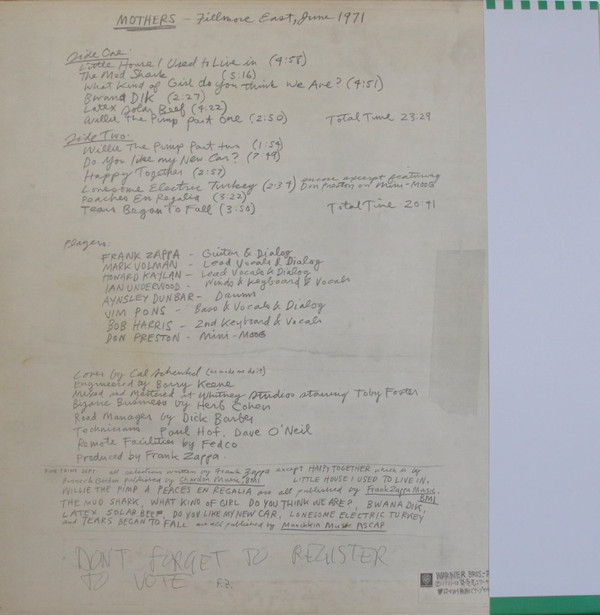 MOTHERS - Fillmore East, June 1971
Side One
Little House I Used to Live in (4:58)
The Mud Shark (5:16)
What Kind of Girl do you think we Are? (4:51)
Bwana Dik (2:27)
Latex Solar Beef (4:22)
Willie The Pimp Part One (2:50) Total Time 23:29
Side Two:
Willie The Pimp Part two (1:54)
Do You like my New Car? (7:49)
Happy Together (2:57)
Lonesome Electric Turkey (2:39) encore excerpt featuring Don Preston on Mini-Moog
Peaches En Regalia (3:22)
Tears Began To Fall (3:50) Total Time 20:41
Players:
FRANK ZAPPA - Guitar & Dialog
MARK VOLMAN - Lead Vocals & Dialog
HOWARD KAYLAN - Lead Vocals & Dialog
IAN UNDERWOOD - Winds & Keyboard & Vocals
AYNSLEY DUNBAR - Drums
JIM PONS - Bass & Vocals & Dialog
BOB HARRIS - 2nd Keyboard & Vocals
DON PRESTON - Mini-MOOG
Cover by Cal Schenkel
Engineered by Barry Keene
Mixed and Mastered at Whitney Studios starring Toby Foster
Bizarre Business by Herb Cohen
Road Manager by Dick Barber
Technicians Paul Hof, Dave O'Neil
Remote Facilities by Fedco
Produced by Frank Zappa
all selections written by Frank Zappa except HAPPY TOGETHER which is by
published by Chardon Music, BMI LITTLE HOUSE I USED TO LIVE IN,
WILLIE THE PIMP & PEACES EN REGALIA are all published by Frank Zappa Music, BMI
THE MUD SHARK, WHAT KIND OF GIRL DO YOU THINK WE ARE?, BWANA DIK,
LATEX SOLAR BEEF, DO YOU LIKE MY NEW CAR, LONESOME ELECTRIC TURKEY
and TEARS BEGAN TO FALL are all published by Munchkin Music ASCAP
DON'T FORGET TO REGISTER
TO VOTE F.Z.
WARNER BROS.